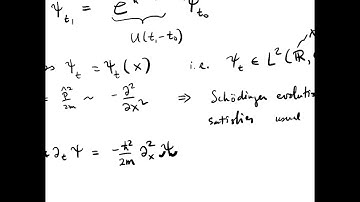 ψ_{t_1} = e ψ_{t_0}
U(t_1 - t_0)
ψ_t = ψ_t(x) i.e. ψ_t ∈ L²(ℝ,
p̂²/2m ~ -∂²/∂x² ⇒ Schödinger evolution
satisfies usual
∂_t ψ = -ħ²/2m ∂_x² ψ